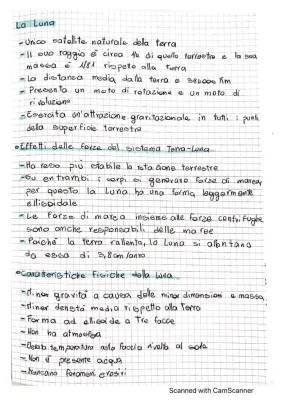 La Luna
- Unico satellite naturale della terra
- Il suo raggio è circa 1/4 di quello terrestre e la sua
massa è 1/81 rispetto alla terra
- La distanza media dalla terra è 384000 Km
- Presenta un moto di rotazione e un moto di
rivoluzione
- Esercita un'attrazione gravitazionale in tutti i punti
della superficie terrestre
• Effetti delle forze del sistema Terra-Luna
- Ha reso più stabile la rotazione terrestre
- Su entrambi i corpi si generano forze di marea,
per questo la Luna ha una forma leggermente
ellissoidale
- Le forze di marea insieme alle forze centrifughe
sono anche responsabili delle maree
- Poiché la terra rallenta, la Luna si allontana
da essa di 3,8 cm/anno
• Caratteristiche fisiche della luna
- Minor gravità a causa delle minor dimensioni e massa
- Minor densità media rispetto alla Terra
- Forma ad ellissoide a Tre facce
- Non ha atmosfera
- temperatura nella faccia rivolta al sole
- Non è presente acqua
- Mancano fenomeni erosivi
Scanned with CamScanner